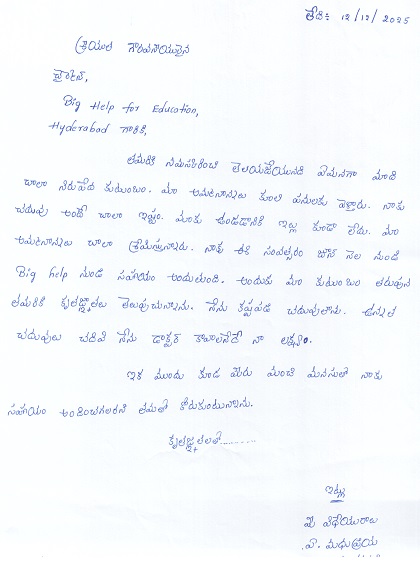 తేది: 12/12/2025
శ్రీయుత గౌరవనీయులైన
ఫౌండర్,
Big Help for Education,
Hyderabad గారికి,
తమరికి నమస్కరించి తెలియజేయునది ఏమనగా మాది
చాలా నిరుపేద కుటుంబం. మా అమ్మానాన్నలు కూలి పనులకు వెళ్తారు. నాకు
చదువు అంటే చాలా ఇష్టం. మాకు ఉండడానికి ఇల్లు కూడా లేదు. మా
అమ్మనాన్నలు చాలా శ్రమిస్తున్నారు. నాకు ఈ సంవత్సరం జూన్ నెల నుండి
Big help నుండి సహాయం అందుతుంది. అందుకు మా కుటుంబం తరుపున
తమరికి కృతజ్ఞతలు తెలుపుచున్నాను. నేను కష్టపడి చదువుతాను. ఉన్నత
చదువులు చదివి నేను డాక్టర్ కావాలనేదే నా లక్ష్యం.
ఇక ముందు కూడ మీరు మంచి మనసుతో నాకు
సహాయం అందించగలరని తమతో కోరుకుంటున్నాను.
కృతజ్ఞతలతో...........
ఇట్లు
మీ విధేయురాలు
వి. మధుప్రియ